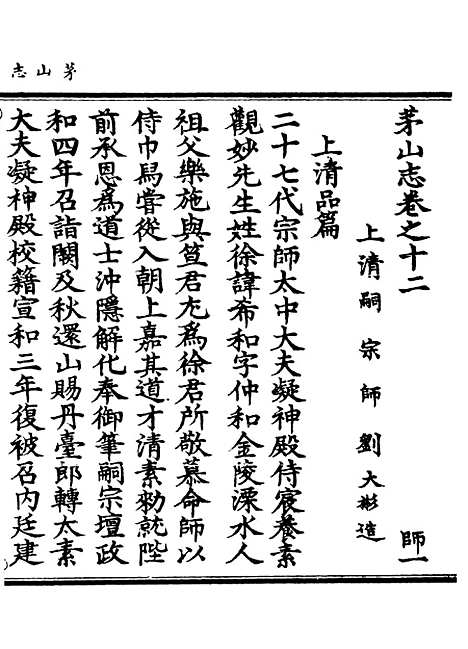 茅山志
茅山志卷之十二 師一
上清嗣宗師劉大彬造
上清品篇
二十七代宗師太中大夫凝神殿侍宸養素
觀妙先生姓徐諱希和字仲和金陵溧水人
祖父樂施與笪君尤爲徐君所敬慕命師以
侍巾舄嘗從入朝上嘉其道才清素勑就陛
前承恩爲道士沖隱解化奉御筆嗣宗壇政
和四年召詣闕及秋還山賜丹臺郎轉太素
大夫凝神殿校籍宣和三年復被召内廷建